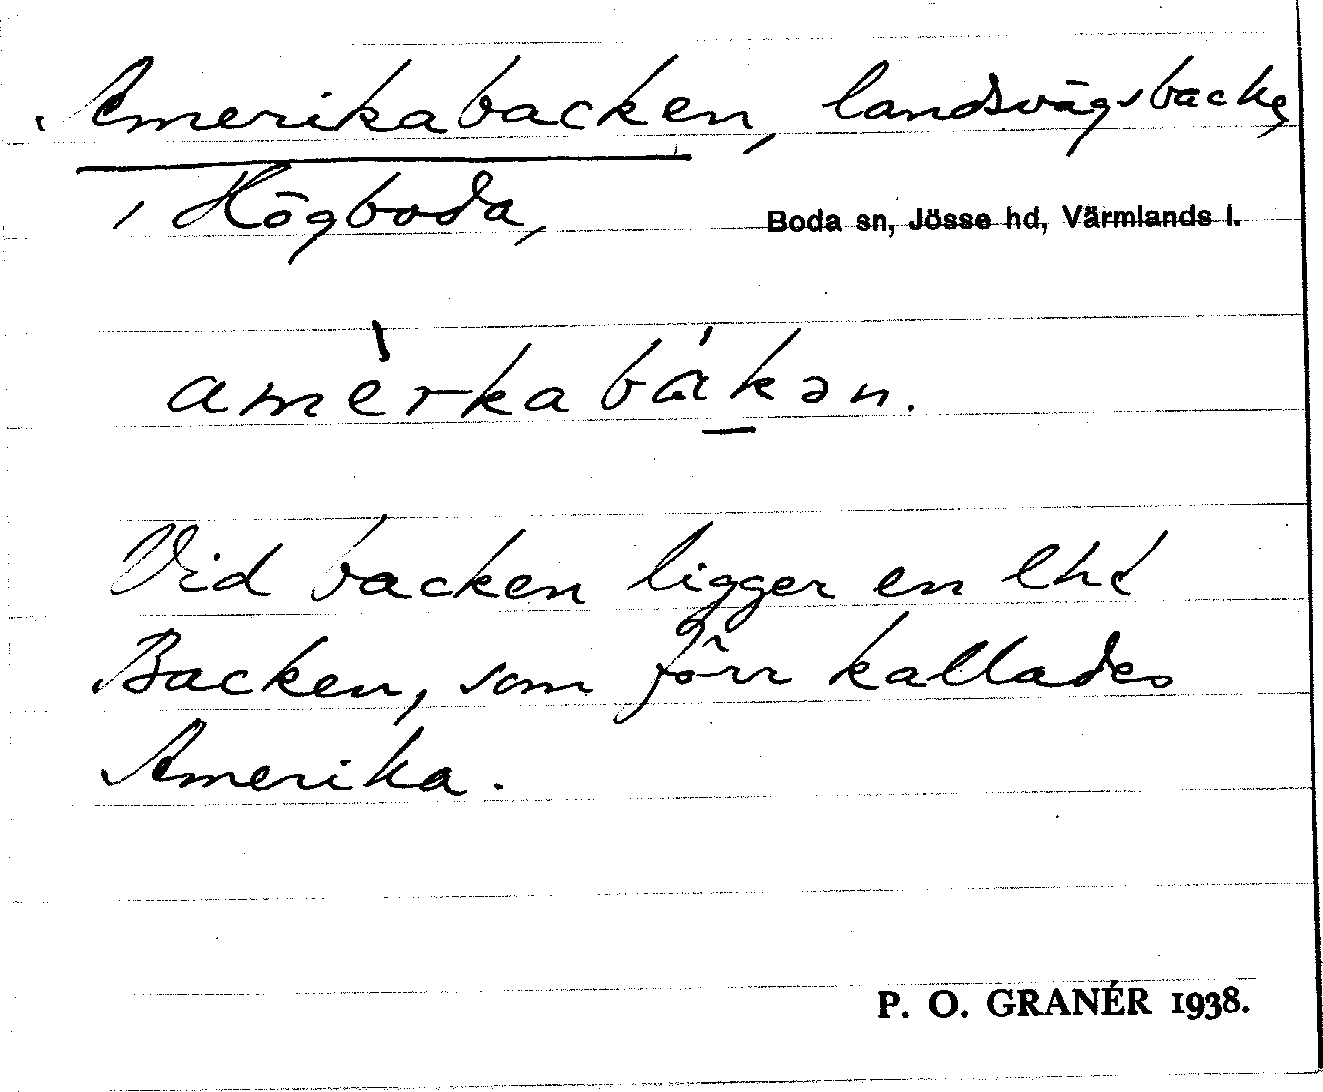 Amerikabacken, landsvägsbacke,
i Högboda, Boda sn, Jösse hd, Värmlands l.
amèrkabákən.
Vid backen ligger en lht
Backen, som förr kallades
Amerika.
P. O. GRANÉR 1938.